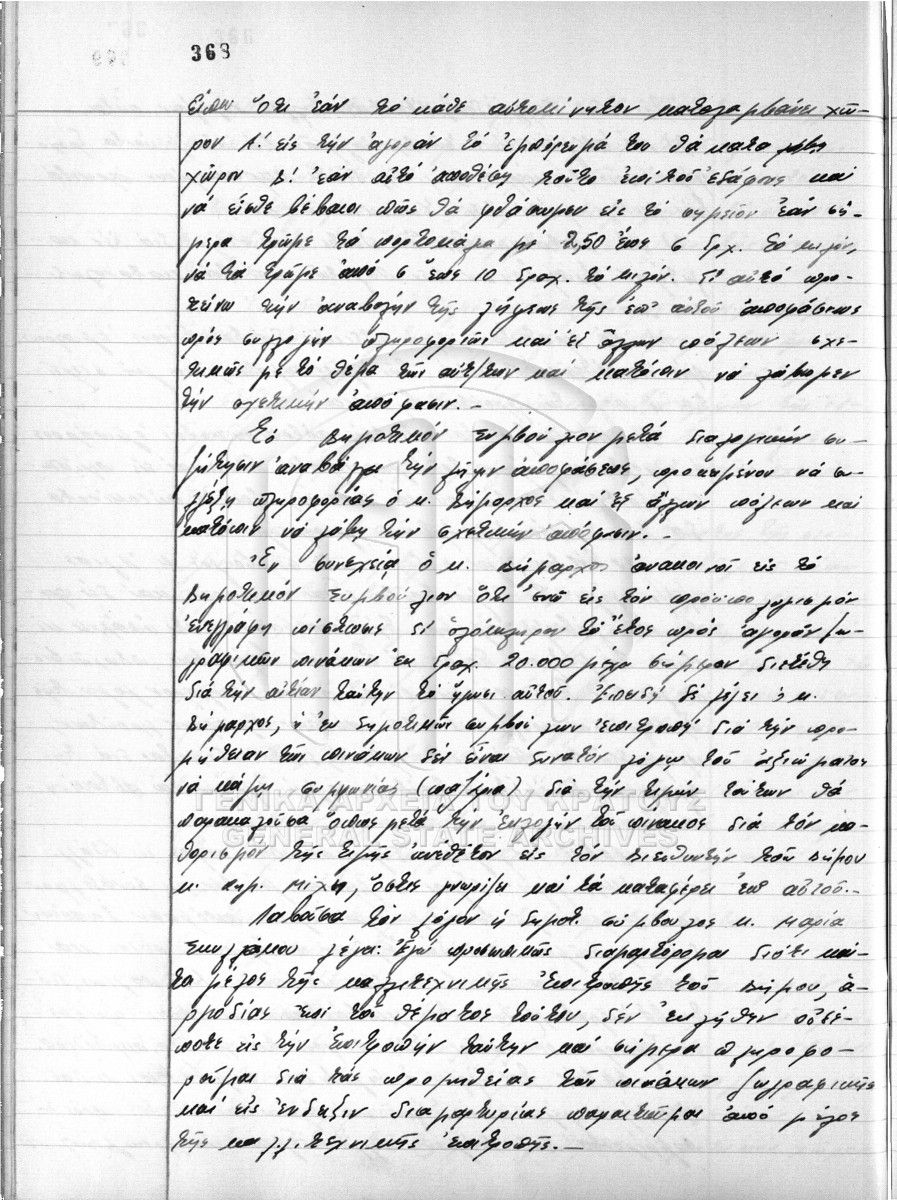 368
εἶπεν ὅτι ἐάν τό κάθε αὐτοκίνητον καταλαμβάνει χῶ-
ρον Α! εἰς τήν ἀγοράν τό ἐμπόρευμά του θά κατα
χῶρον Β! ἐάν αὐτό ἀποθέσῃ τοῦτο ἐπί τοῦ ἐδάφους καί
νά εἶσθε βέβαιοι πῶς θά φθάσωμεν εἰς τό σημεῖον ἐάν σή-
μερα τρῶμε τά πορτοκάλια μέ 2,50 ἕως 5 δρχ. τό κιλόν,
νά τά τρῶμε ἀπό 5 ἕως 10 δραχ. τό κιλόν. Δι' αὐτό προ-
τείνω τήν ἀναβολήν τῆς λήψεως τῆς ἐπ' αὐτοῦ ἀποφάσεως
πρός συλλογήν πληροφοριῶν καί ἐξ ἄλλων πόλεων σχε-
τικῶς μέ τό θέμα τῶν αὐτ/των καί κατόπιν νά λάβωμεν
τήν σχετικήν ἀπόφασιν.-
Τό Δημοτικόν Συμβούλιον μετά διαλογικήν συ-
ζήτησιν ἀναβάλλει τήν λῆψιν ἀποφάσεως, προκειμένου νά συ-
λλέξῃ πληροφορίας ὁ κ. Δήμαρχος καί ἐξ ἄλλων πόλεων καί
κατόπιν νά λάβῃ τήν σχετικήν ἀπόφασιν.-
Ἐν συνεχείᾳ ὁ κ. Δήμαρχος ἀνακοινοῖ εἰς τό
Δημοτικόν Συμβούλιον ὅτι ἐνῶ εἰς τόν προϋπολογισμόν
ἐνεγράφη πίστωσις δι' ὁλόκληρον τό ἔτος πρός ἀγοράν ζω-
γραφικῶν πινάκων ἐκ δραχ. 20.000 μέχρι σήμερον διετέθη
διά τήν αἰτίαν ταύτην τό ἥμισυ αὐτοῦ. Ἐπειδή δέ λέγει ὁ κ.
Δήμαρχος, ἡ ἐκ δημοτικῶν συμβούλων ἐπιτροπή διά τήν προ-
μήθειαν τῶν πινάκων δέν εἶναι δυνατόν λόγῳ τοῦ ἀξιώματος
νά κάμῃ συμφωνίας (παζάρια) διά τήν τιμήν τούτων θά
παρακαλοῦσα ὅπως μετά τήν ἐκλογήν τοῦ πίνακος διά τόν κα-
θορισμόν τῆς τιμῆς ἀνέθετον εἰς τόν Διευθυντήν τοῦ Δήμου
κ. Δημ. Μίχη, ὅστις γνωρίζει καί τά καταφέρει ἐπ' αὐτοῦ.-
Λαβοῦσα τόν λόγον ἡ δημοτ. σύμβουλος κ. Μαρία
Σκυλλάκου λέγει: Ἐγώ προσωπικῶς διαμαρτύρομαι διότι καί-
τοι μέλος τῆς καλλιτεχνικῆς ἐπιτροπῆς τοῦ Δήμου, ἁ-
ρμοδίας ἐπί τοῦ θέματος τούτου, δέν ἐκλήθην οὐδέ-
ποτε εἰς τήν ἐπιτροπήν ταύτην καί σήμερα πληροφο-
ροῦμαι διά τάς προμηθείας τῶν πινάκων ζωγραφικῆς
καί εἰς ἔνδειξιν διαμαρτυρίας παραιτοῦμαι ἀπό μέλος
τῆς καλλιτεχνικῆς ἐπιτροπῆς.-
ΓΕΝΙΚΑ ΑΡΧΕΙΑ ΤΟΥ ΚΡΑΤΟΥΣ
GENERAL STATE ARCHIVES